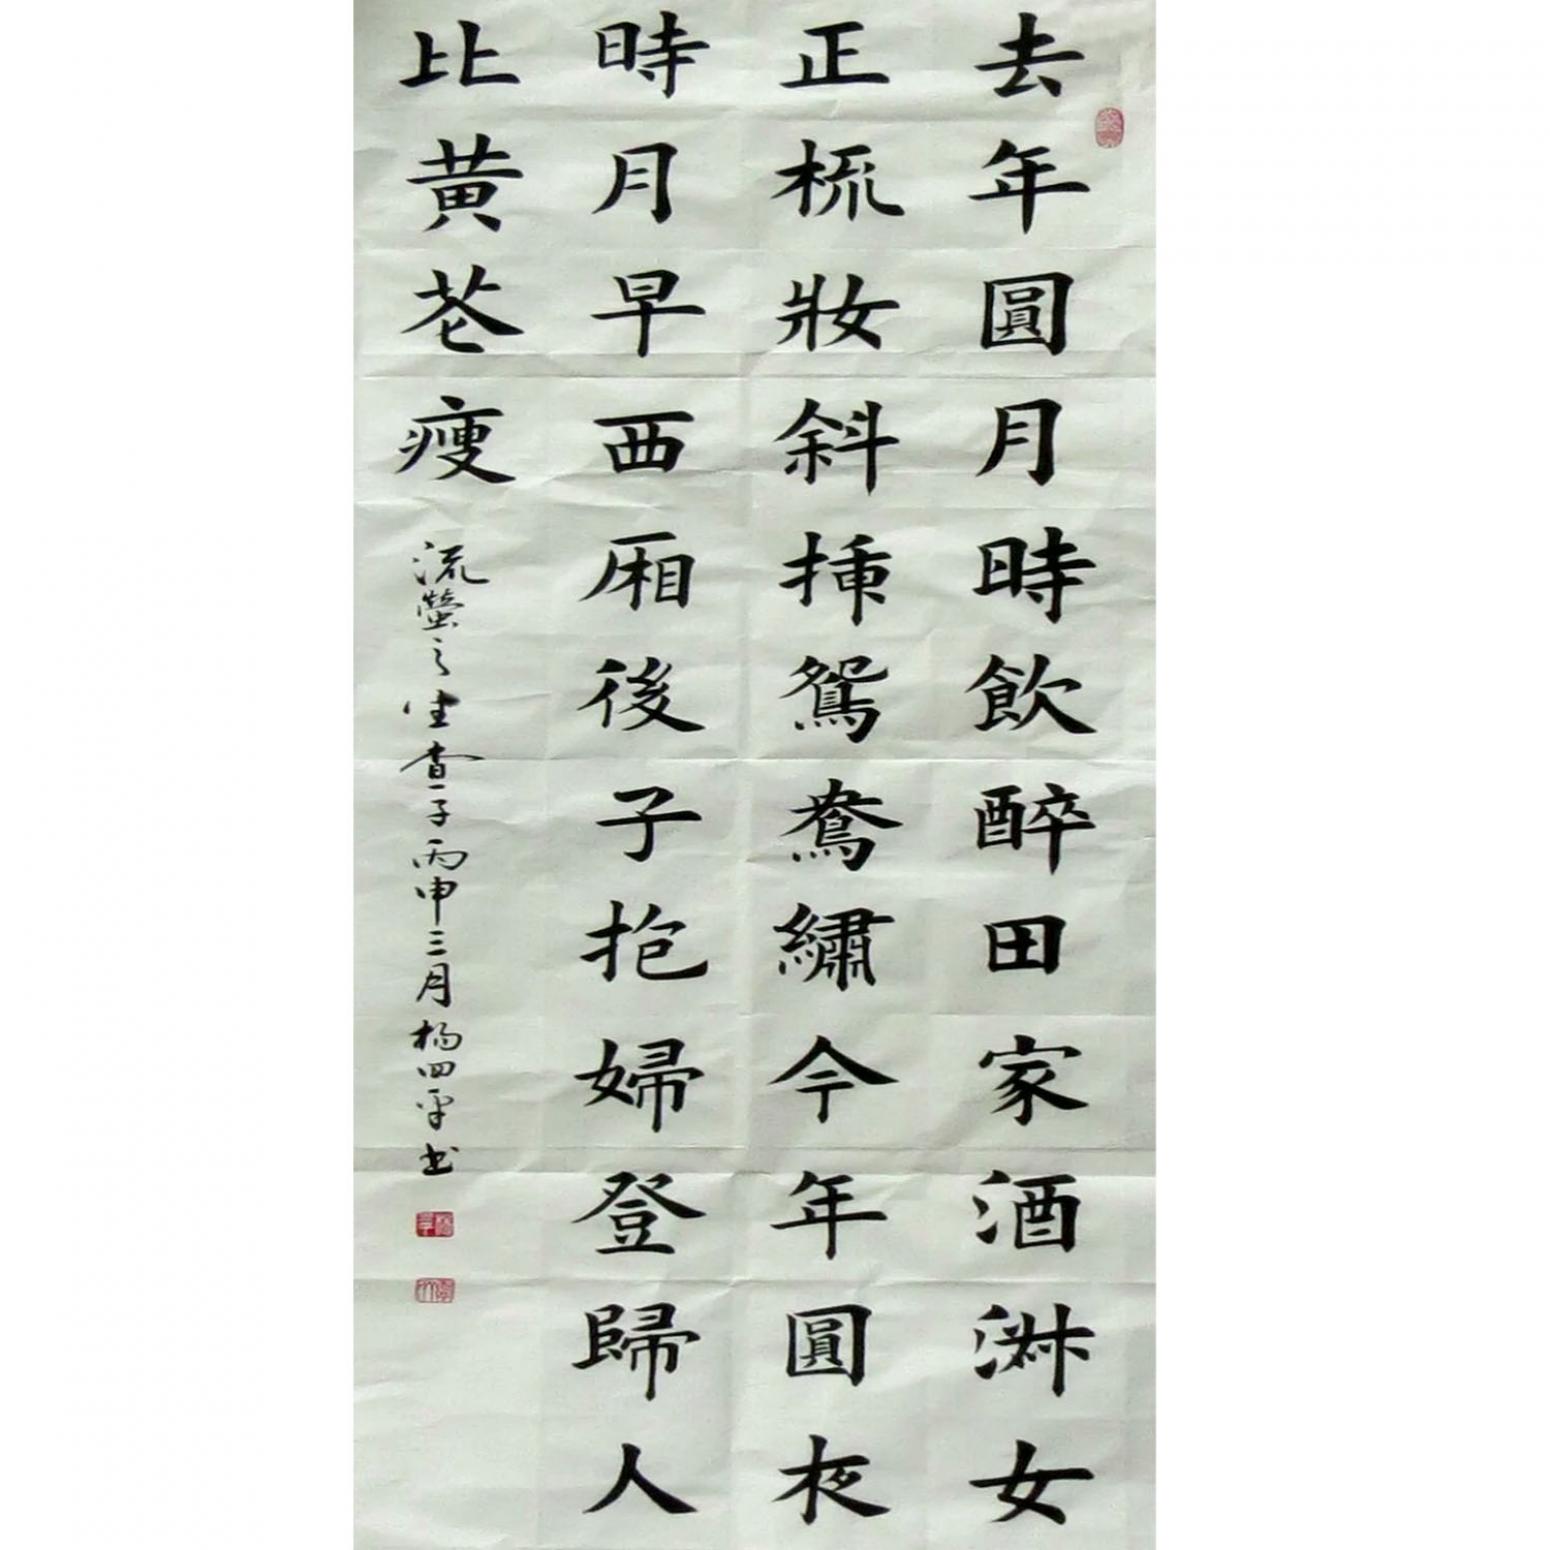 去年圓月時飲醉田家酒淑女
正梳妝斜插鴛鴦繡今年圓夜
時月早西厢後子抱婦登歸人
比黄花瘦
流螢之生查子丙申三月楊四平书